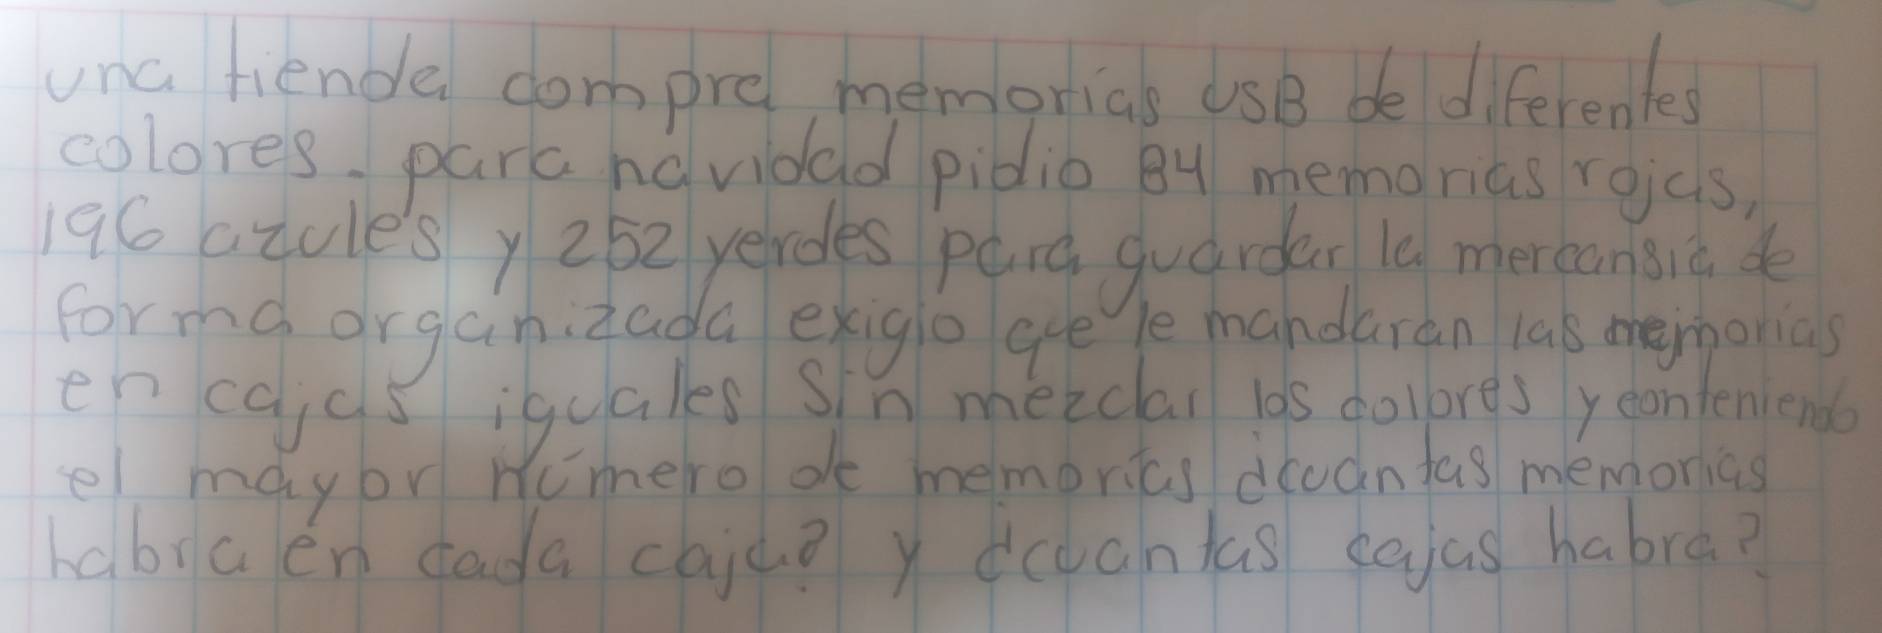 una tienda compra memorias USB de diferentes
colores. para navidad pidio 84 memorias rojas,
196 azules y 252 verdes para guardar la mercansia de
forma organizada exigio que le mandaran las memorias
en cajas iguales sin mezclar los colores y conteniendo
el mayor número de memorias ¿cuantas memorias
habra en cada caja? y ¿cuantas cajas habra?